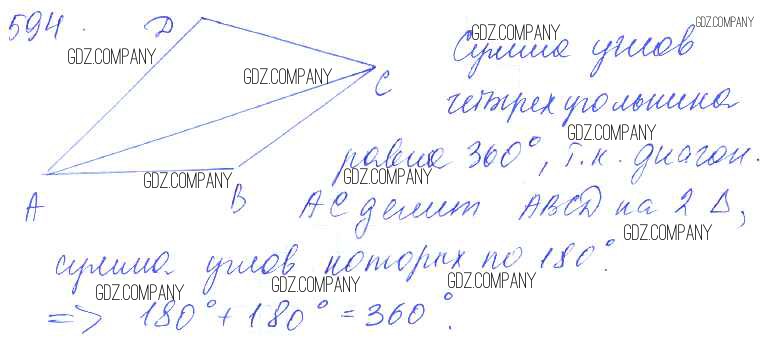 594.
D
GDZ.COMPANY
GDZ.COMPANY
C
A
B
GDZ.COMPANY
GDZ.COMPANY
GDZ.COMPANY
Сумма углов
четырехугольника
GDZ.COMPANY
равна 360°, т.к. диагон.
GDZ.COMPANY
AC делит ABCD на 2 Δ,
GDZ.COMPANY
сумма углов которых по 180°.
GDZ.COMPANY
GDZ.COMPANY
GDZ.COMPANY
=> 180° + 180° = 360°.